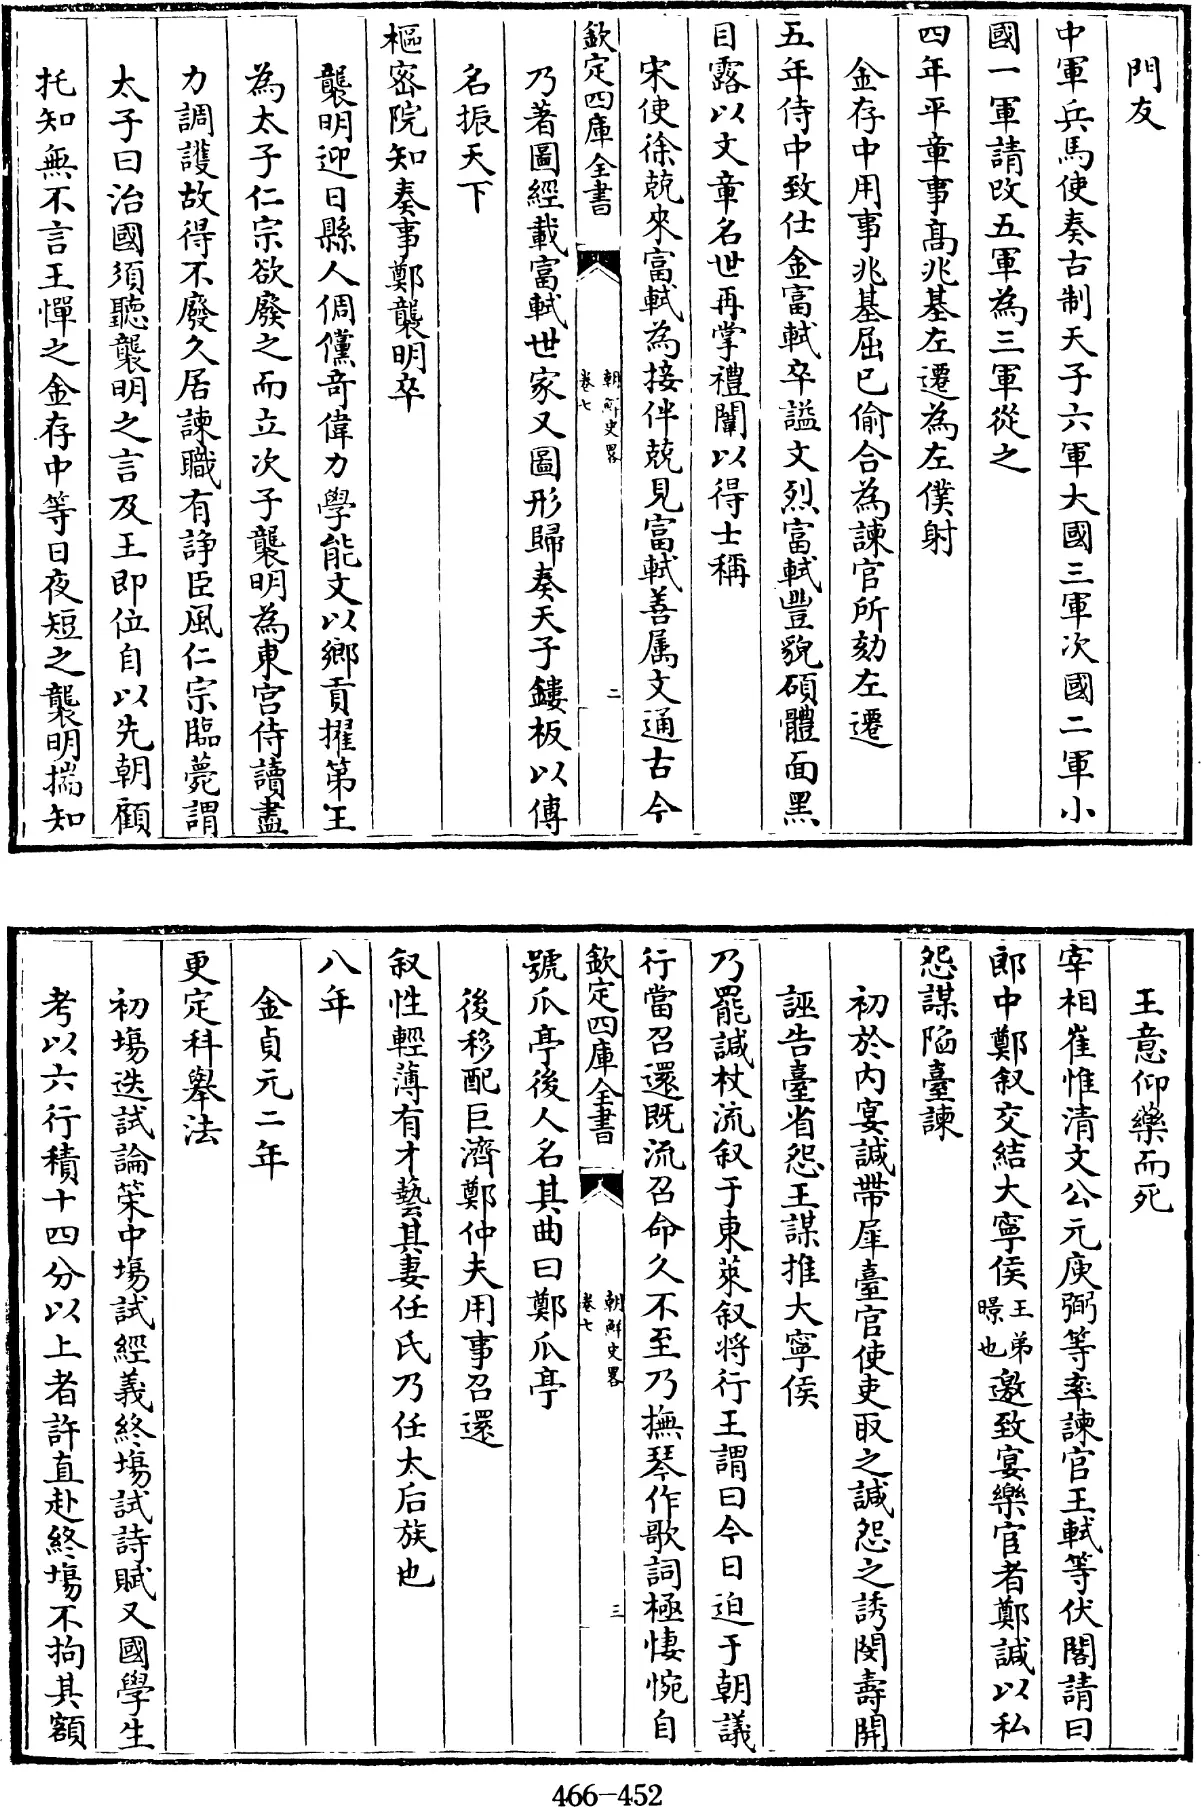 門友
中軍兵馬使奏古制天子六軍大國三軍次國二軍小
國一軍請改五軍為三軍從之
四年平章事高兆基左遷為左僕射
金存中用事兆基屈已偷合為諫官所劾左遷
五年侍中致仕金富軾卒謚文烈富軾豐貌碩體面黑
目露以文章名世再掌禮闈以得士稱
宋使徐兢來富軾為接伴兢見富軾善属文通古今
欽定四庫全書
朝鮮史畧
卷七
二
乃著圖經載富軾世家又圖形歸奏天子鏤板以傳
名振天下
樞密院知奏事鄭襲明卒
襲明迎日縣人倜儻奇偉力學能文以鄉貢擢第王
為太子仁宗欲廢之而立次子襲明為東宮侍讀盡
力調護故得不廢久居諫職有諍臣風仁宗臨薨謂
太子曰治國須聽襲明之言及王即位自以先朝顧
托知無不言王憚之金存中等日夜短之襲明揣知
王意仰藥而死
宰相崔惟清文公元庾弼等率諫官王軾等伏閤請曰
郎中鄭叙交結大寧侯王弟暻也邀致宴樂宦者鄭諴以私
怨謀陷臺諫
初於内宴諴帶犀臺官使吏取之諴怨之誘閔壽開
誣告臺省怨王謀推大寧侯
乃罷諴杖流叙于東萊叙将行王謂曰今日迫于朝議
行當召還既流召命久不至乃撫琴作歌詞極悽惋自
欽定四庫全書
朝鮮史畧
卷七
三
號瓜亭後人名其曲曰鄭瓜亭
後移配巨濟鄭仲夫用事召還
叙性輕薄有才藝其妻任氏乃任太后族也
八年
金貞元二年
更定科舉法
初塲迭試論策中塲試經義終塲試詩賦又國學生
考以六行積十四分以上者許直赴終塲不拘其額
466-452